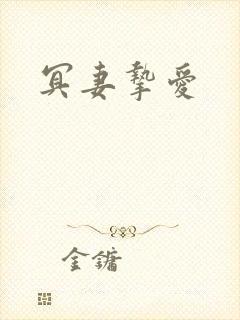 冥妻摯愛
金鏞